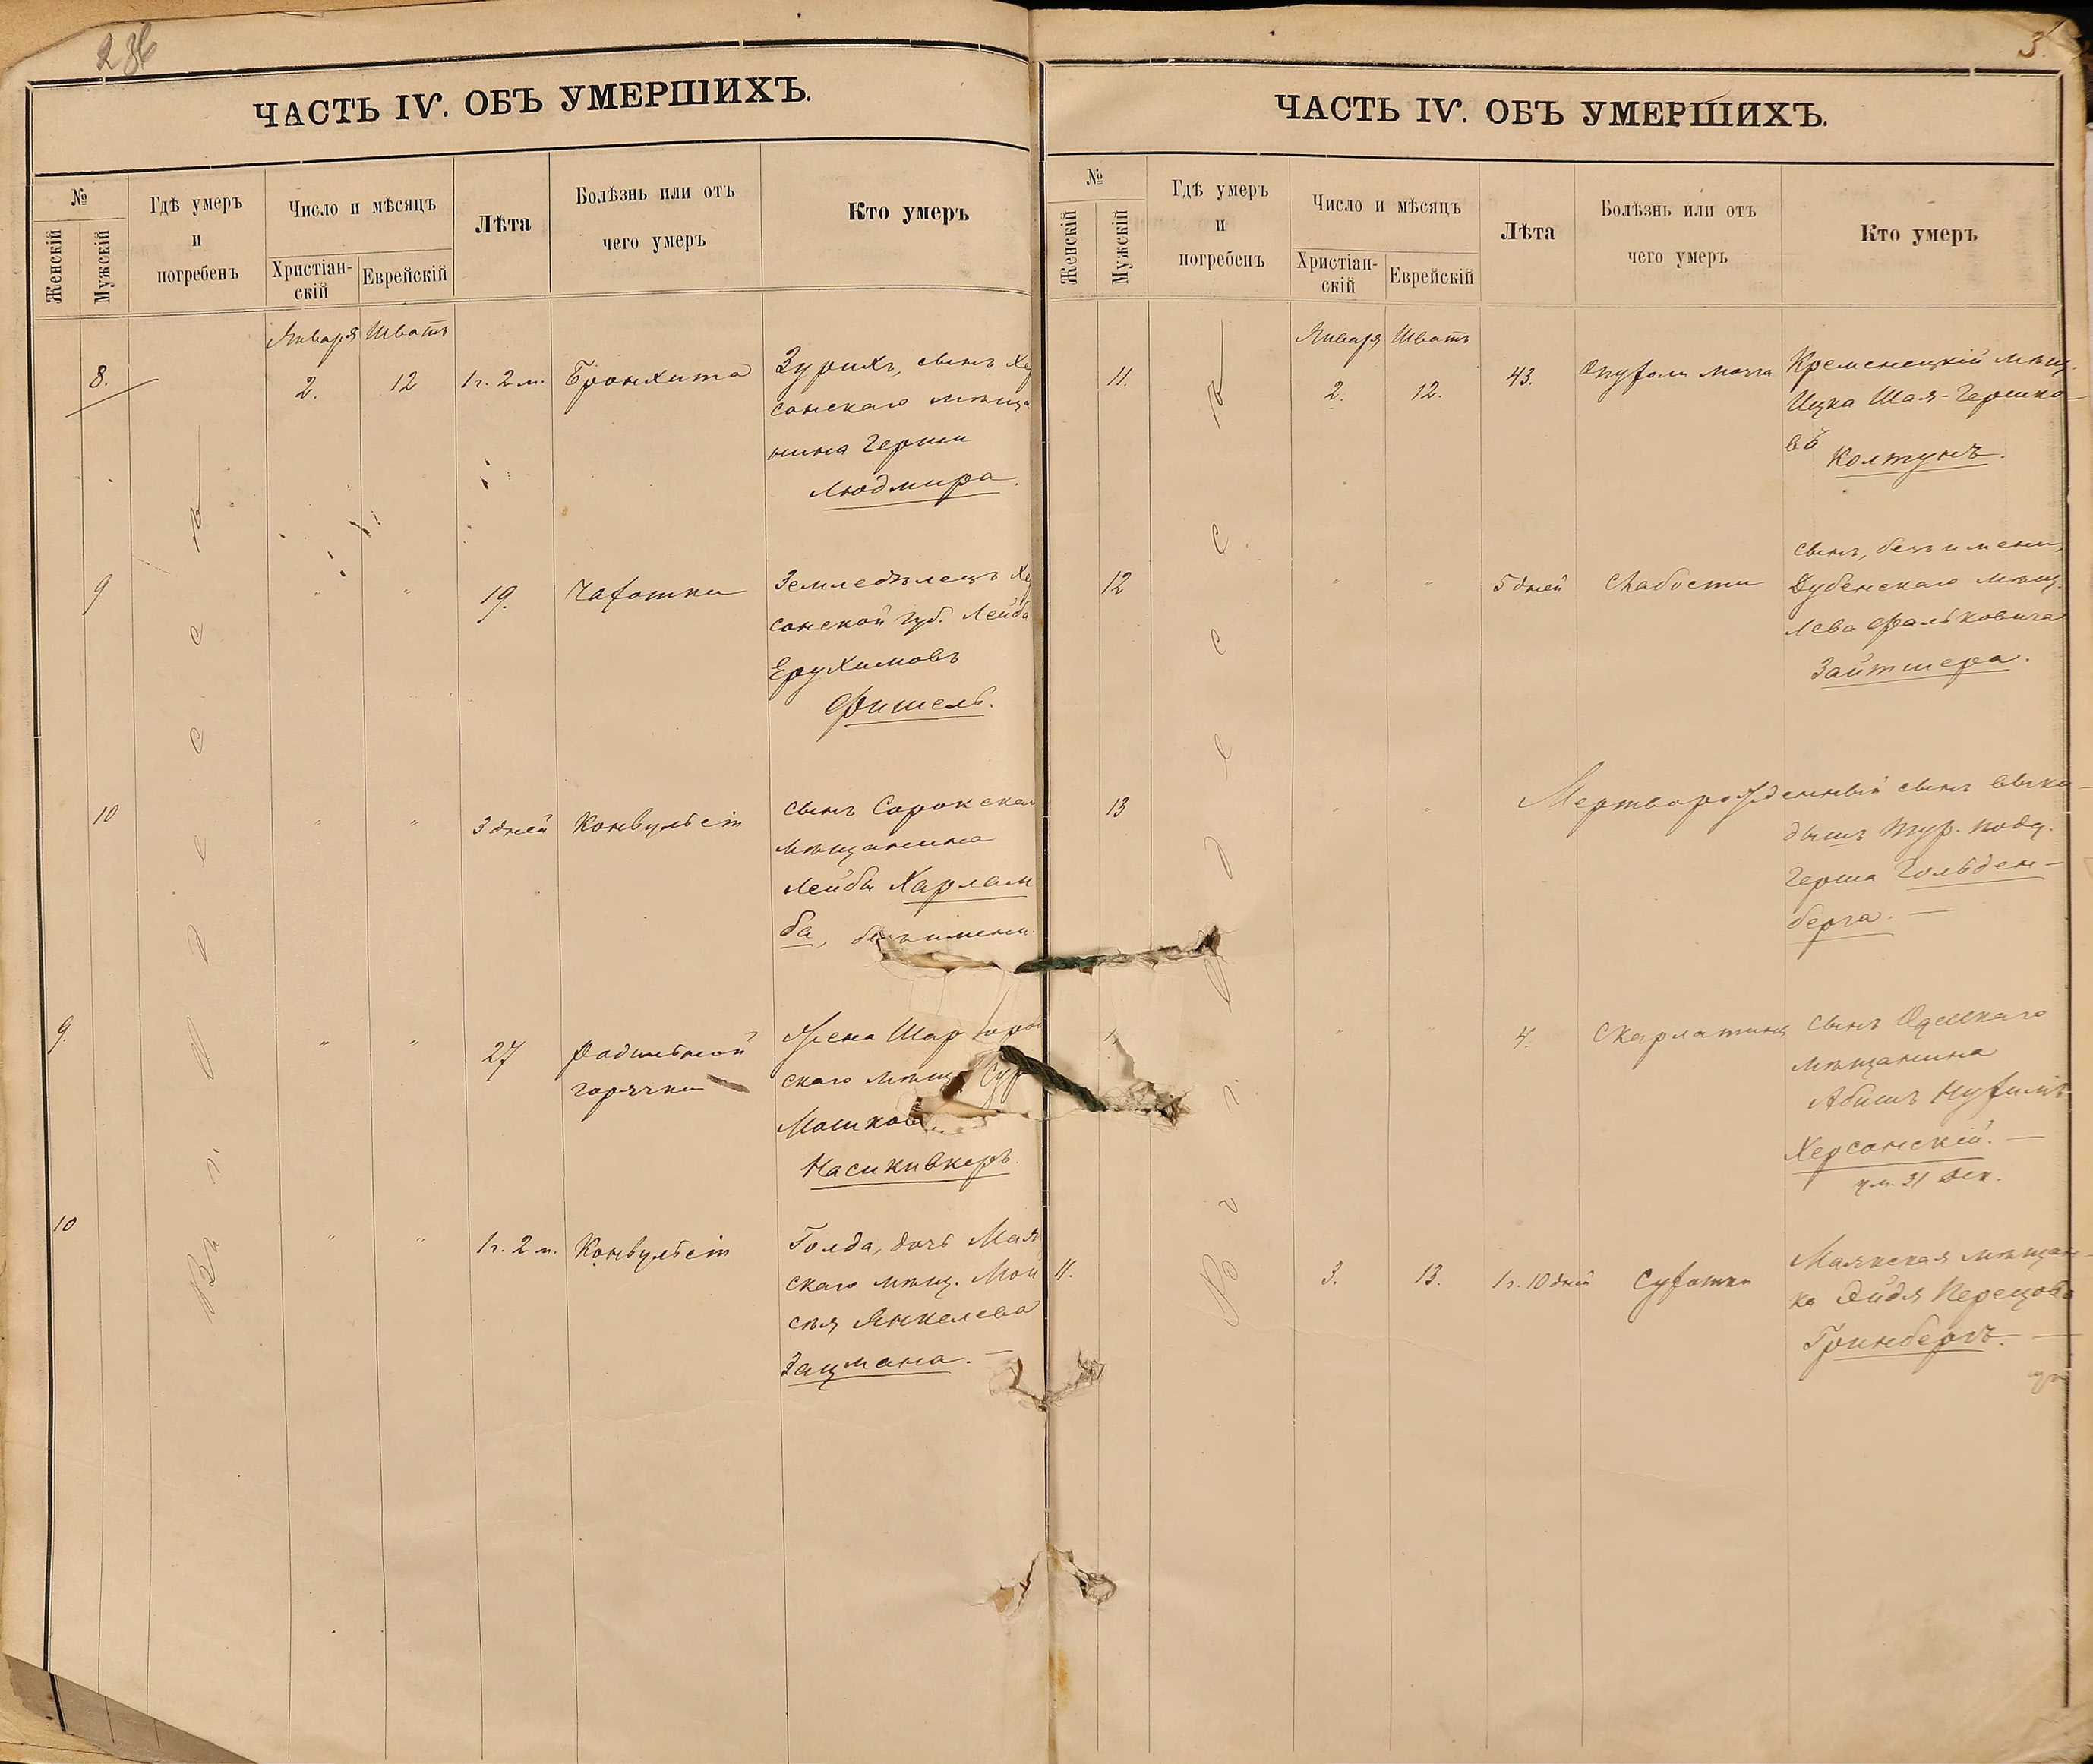 236
ЧАСТЬ IV. ОБЪ УМЕРШИХЪ.
№
Женскій
Мужскій
Гдѣ умеръ
и
погребенъ
Число и мѣсяцъ
Христіан-
скій
Еврейскій
Лѣта
Болѣзнь или отъ
чего умеръ
Кто умеръ
Января Шватъ
8. 2. 12 1 г. 2 м. Бронхита Зурихъ, сынъ Хер
сонскаго мѣща
нина Герши
Людмира.
9. " " 19. Чахотки Земледѣлецъ Хер
сонской губ. Лейба
Ерухимовъ
Фишель.
10 " " 3 дней Конвульсіи сынъ Сорокскаго
мѣщанина
Лейбы Харлам
ба, безъ имени.
9. " " 27 Родильной горячки жена Шаргород
скаго мѣщ.
Мошков
Насикивкеръ.
10 " " 1 г. 2 м. Конвульсіи Голда, дочь Маяк
скаго мѣщ. Мои
сея Янкелева
Зацмана.
Въ г. Одесса
3.
ЧАСТЬ IV. ОБЪ УМЕРШИХЪ.
№
Женскій
Мужскій
Гдѣ умеръ
и
погребенъ
Число и мѣсяцъ
Христіан-
скій
Еврейскій
Лѣта
Болѣзнь или отъ
чего умеръ
Кто умеръ
Января Шватъ
11. 2. 12. 43. Опухоли мозга Кременецкій мѣщ.
Ицка Шая-Гершко-
въ Колтунъ.
12 " " 5 дней Слабости сынъ, безъ имени,
Дубенскаго мѣщ.
Лева Фальковича
Зайтшера.
13 " " Мертворожденный сынъ выки-
дышъ тур. подд.
Герша Гольден-
берга.
" 4. Скарлатины сынъ Одесскаго
мѣщанина
Абишъ Нухимъ
Херсонскій.
ум. 31 Дек.
11. 3. 13. 1 г. 10 дней Сухотки Маякская мѣщан-
ка Эйдя Перецова
Гринбергъ.
Въ г. Одесса